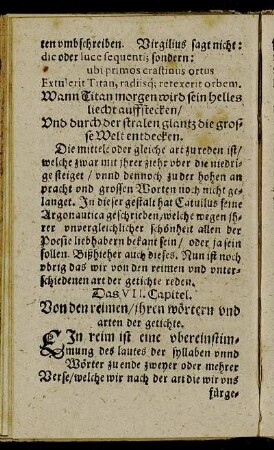 ten vmbschreiben. Virgilius sagt nicht:
die oder luce sequenti; sondern:
ubi primos crastinus ortus
Extulerit Titan, radiisq; retexerit orbem.
Wann Titan morgen wird sein helles
liecht auffstecken/
Vnd durch der stralen glantz die gros-
se Welt entdecken.
Die mittele oder gleiche art zue reden ist/
welche zwar mit jhrer ziehr vber die niedri-
ge steiget / vnnd dennoch zue der hohen an
pracht vnd grossen Worten noch nicht ge-
langet. In dieser gestalt hat Catullus seine
Argonautica geschrieben/ welche wegen jh-
rer vnvergleichlicher schönheit allen der
Poesie liebhabern bekant sein/ oder ja sein
sollen. Bißhieher auch dieses. Nun ist noch
vbrig das wir von den reimen vnd vnter-
schiedenen art der getichte reden.
Das VII. Capitel.
Von den reimen/ jhren wörtern vnd
arten der getichte.
EIn reim ist eine vbereinstim-
mung des lautes der syllaben vnnd
Wörter zue ende zweyer oder mehrer
Verse/ welche wir nach der art die wir vns
fürge-